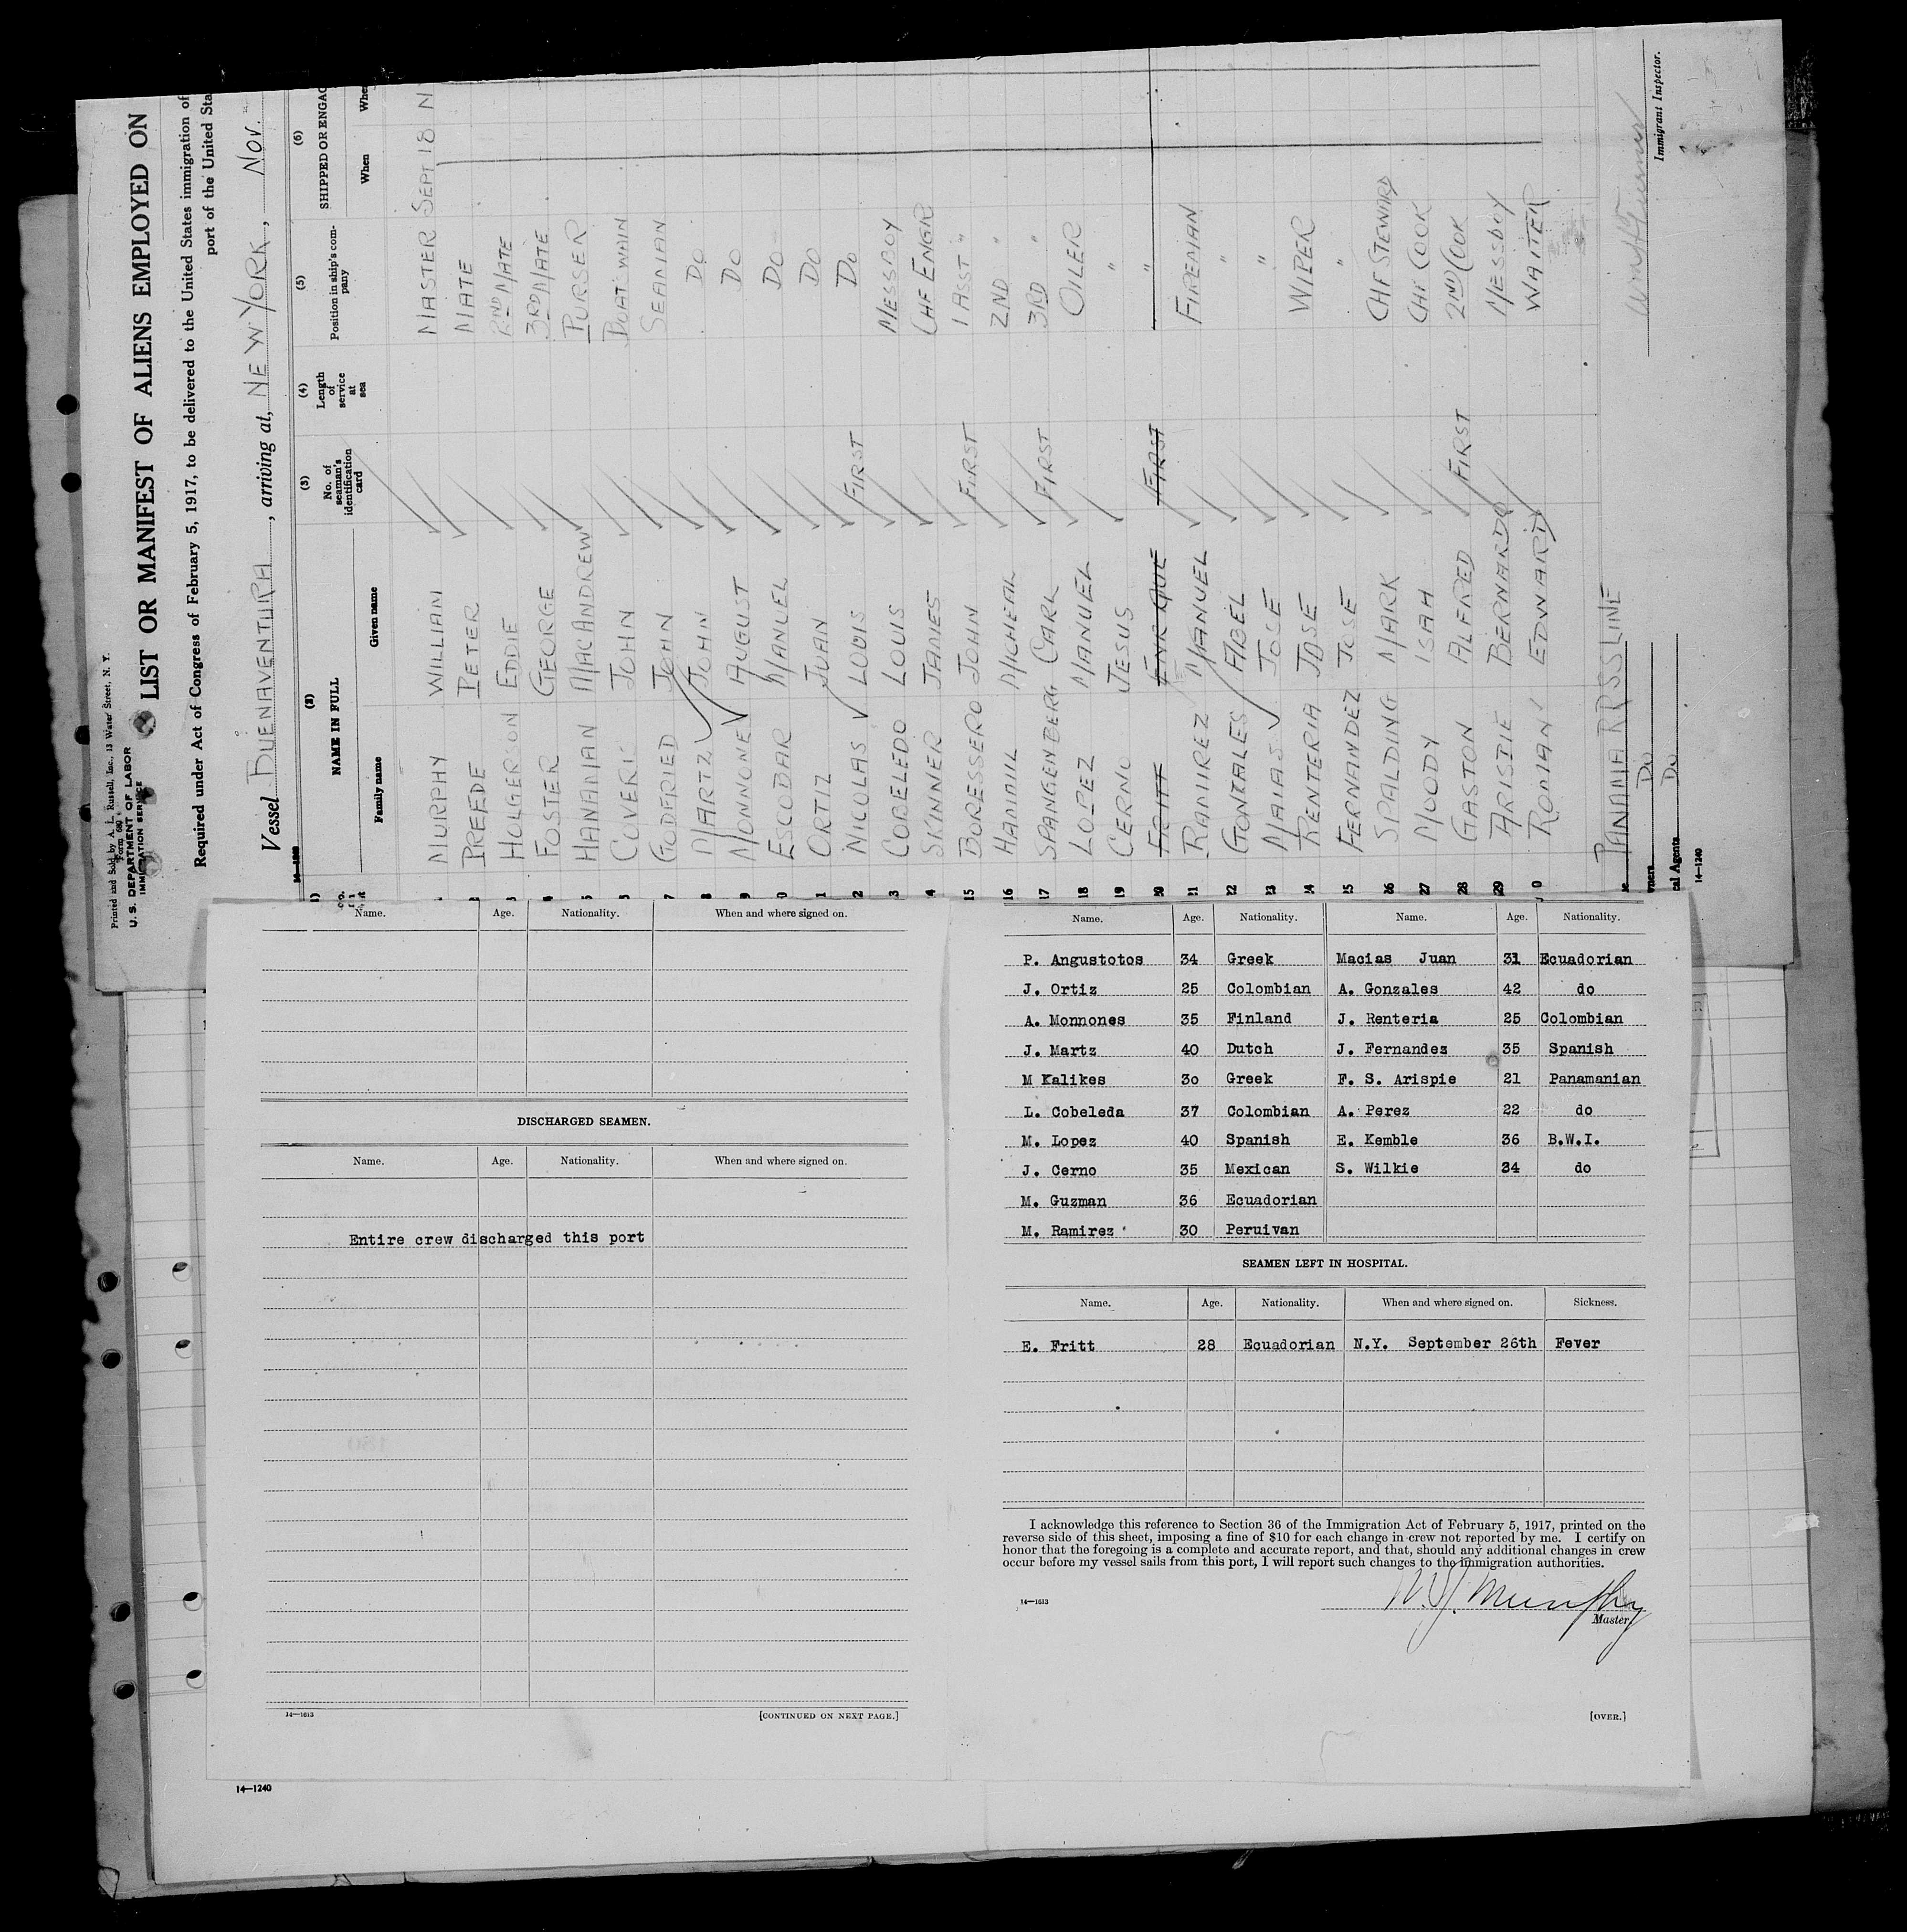 Printed and Sold by A. L. Russell, Inc., 13 Water Street, N. Y.
Form 680
U. S. DEPARTMENT OF LABOR
IMMIGRATION SERVICE
LIST OR MANIFEST OF ALIENS EMPLOYED ON
Required under Act of Congress of February 5, 1917, to be delivered to the United States immigration of
port of the United Sta
Vessel BUENAVENTURA, arriving at, NEW YORK, Nov.
14—1240
(2) (3) (4) (5) (6)
NAME IN FULL No. of seaman's identification card Length of service at sea Position in ship's company SHIPPED OR ENGAG
Family name Given name When Whe
MURPHY WILLIAM MASTER SEPT 18 N
PREEDE PETER MATE
HOLGERSON EDDIE 2ND MATE
FOSTER GEORGE 3RD MATE
HANAMAN MACANDREW PURSER
JOHN BOATSWAIN
GODFRIED JOHN SEAMAN
MARTZ JOHN DO
MONNONE AUGUST DO
ESCOBAR MANUEL DO
ORTIZ JUAN DO
2 NICOLAS LOUIS FIRST DO
3 COBELEDO LOUIS MESSBOY
14 SKINNER JAMES CHF ENGR
15 BORESSERO JOHN FIRST 1 ASST "
16 MICHEAL 2ND "
17 SPANGENBERG CARL FIRST 3RD "
18 LOPEZ MANUEL OILER
19 CERNO JESUS "
20 FRITT ENRIQUE FIRST "
21 RAMIREZ MANUEL FIREMAN
22 GONZALES ABEL "
23 MAIAS JOSE "
24 RENTERIA JOSE WIPER
25 FERNANDEZ JOSE "
26 SPALDING MARK CHF STEWARD
27 MOODY ISAH CHF COOK
28 GASTON ALFRED FIRST 2ND COOK
29 ARISPIE BERNARDO MESSBOY
0 ROMANI EDWARD WAITER
PANAMA RR SS LINE
wners DO
cal Agents DO
14—1240
Immigrant Inspector.
Name. Age. Nationality. When and where signed on.
DISCHARGED SEAMEN.
Name. Age. Nationality. When and where signed on.
Entire crew discharged this port
14—1613 [CONTINUED ON NEXT PAGE.]
14—1240
Name. Age. Nationality. Name. Age. Nationality.
P. Angustotos 34 Greek Macias Juan 31 Ecuadorian
J. Ortiz 25 Colombian A. Gonzales 42 do
A. Monnones 35 Finland J. Renteria 25 Colombian
J. Martz 40 Dutch J. Fernandez 35 Spanish
M Kalikes 30 Greek F. S. Arispie 21 Panamanian
L. Cobeleda 37 Colombian A. Perez 22 do
M. Lopez 40 Spanish E. Kemble 36 B.W.I.
J. Cerno 35 Mexican S. Wilkie 34 do
M. Guzman 36 Ecuadorian
M. Ramirez 30 Peruivan
SEAMEN LEFT IN HOSPITAL.
Name. Age. Nationality. When and where signed on. Sickness.
E. Fritt 28 Ecuadorian N.Y. September 26th Fever
I acknowledge this reference to Section 36 of the Immigration Act of February 5, 1917, printed on the
reverse side of this sheet, imposing a fine of $10 for each change in crew not reported by me. I certify on
honor that the foregoing is a complete and accurate report, and that, should any additional changes in crew
occur before my vessel sails from this port, I will report such changes to the immigration authorities.
W. J. Murphy
14—1613 Master
[OVER.]